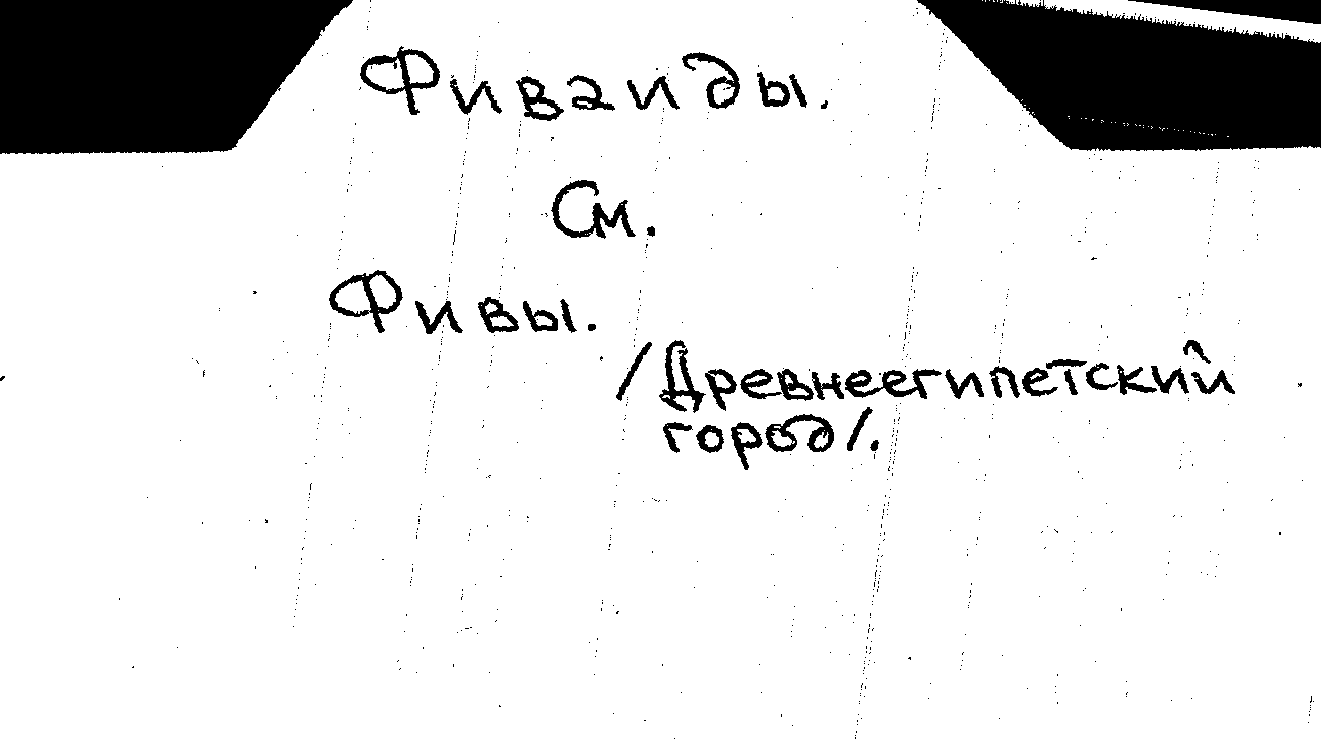 Фиваиды.
См.
Фивы.
/Древнеегипетский
город/.